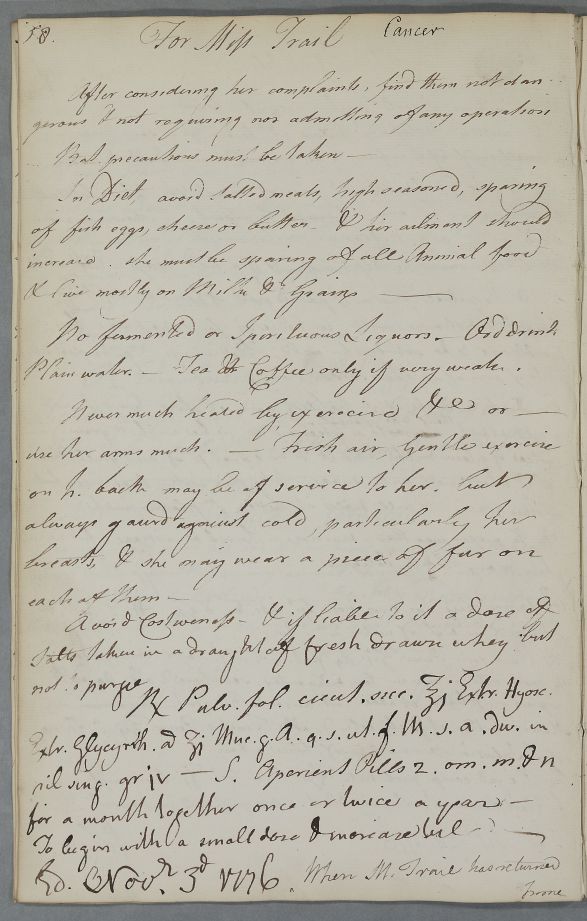 58.
For Miss Trail Cancer
After considering her complaints, find them not dan-
gerous & not requiring nor admitting of any operation
But precautions must be taken —
In Diet avoid salted meats, high seasoned, sparing
of fish eggs, cheese or butter & her ailment should
increase. she must be sparing of all Animal food
& live mostly on Milk & Grains —
No fermented or Spirituous Liquors — drink
Plain water. — Tea & Coffee only if very weak.
Never much heated by exercise &c or —
use her arms much. — Fresh air, Gentle exercise
on h. back may be of service to her. but
always gaurd against cold, particularly her
breasts, & she may wear a piece of fur on
each of them —
Avoid Costiveness — & if liable to it a dose of
Salts taken in a draught of fresh drawn whey but
not to purge
℞ Pulv. fol. cicut. sicc. ʒj Extr. Hyosc.
Extr. Glycyrrh. a ʒj Muc. g. A. q. s. ut. f. M. s. a. div. in
pil sing. gr iv — S. Aperient Pills 2. om. m. & n
for a month together once or twice a year —
To begin with a small dose & increase
Ed. Novr. 3d 1776. When M. Trail has returned
home